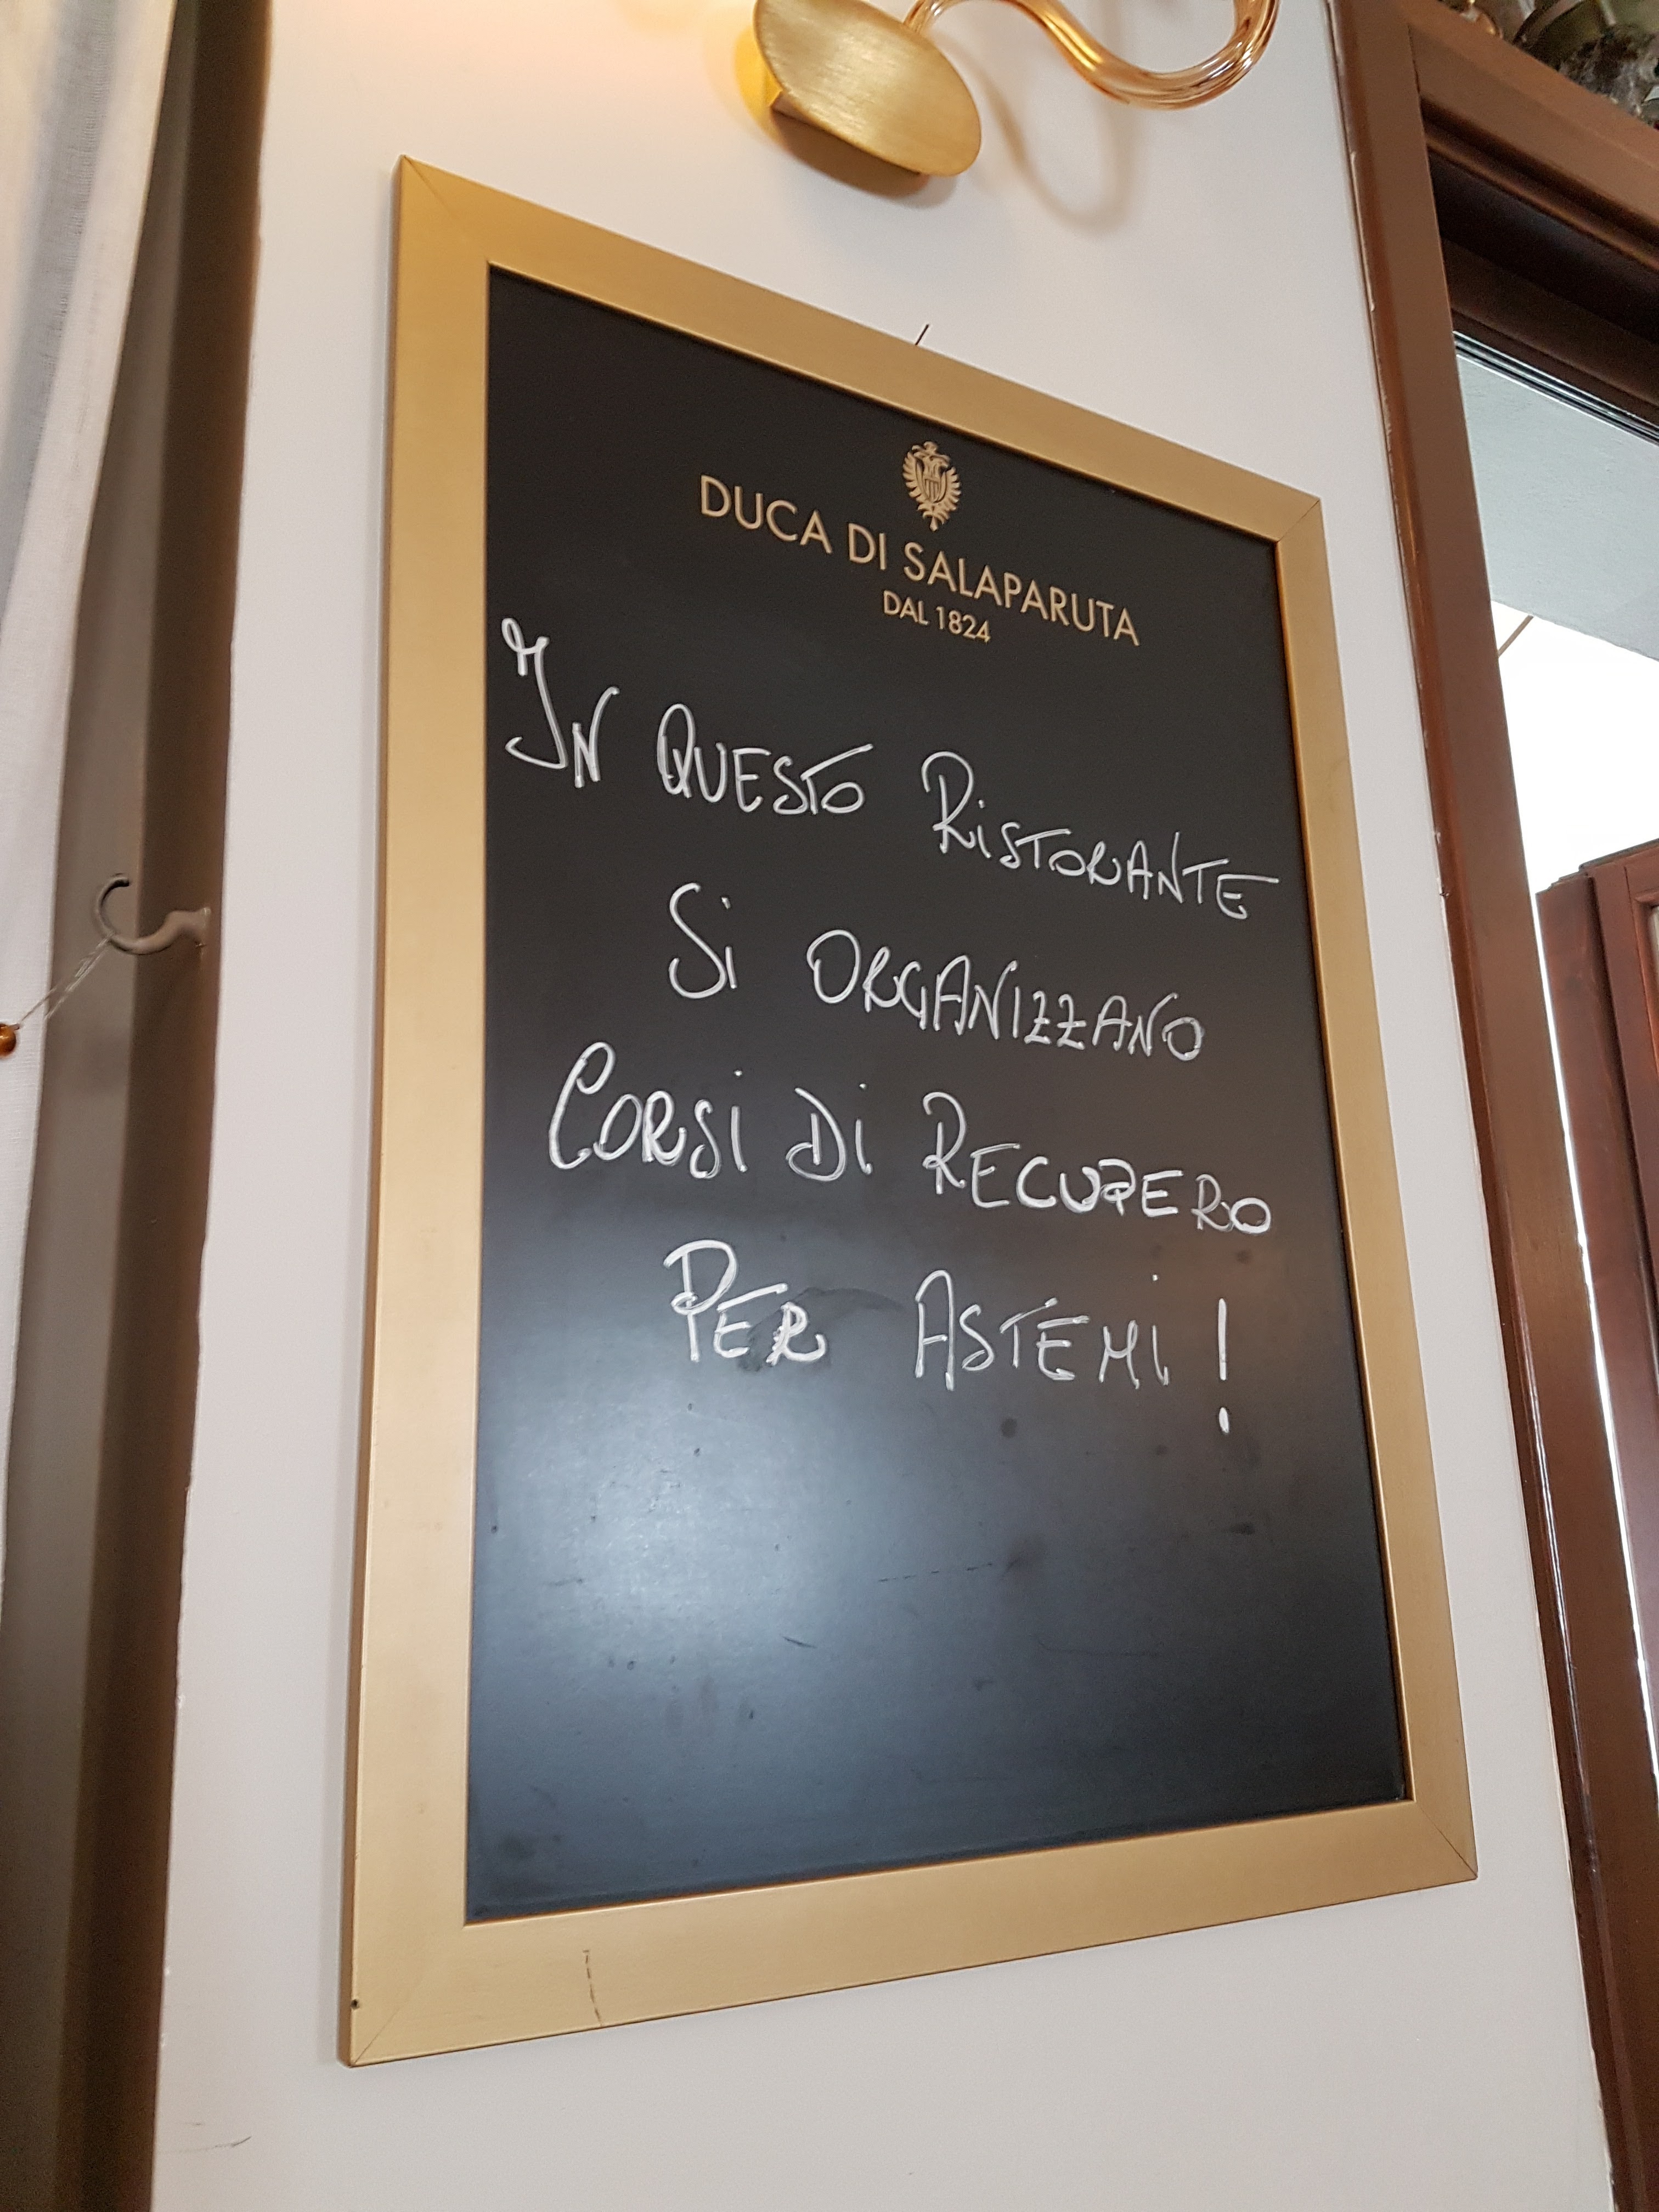 DUCA DI SALAPARUTA
DAL 1824
IN QUESTO RISTORANTE
Si ORGANIZZANO
CORSi Di RECUPERO
PER ASTEMi !